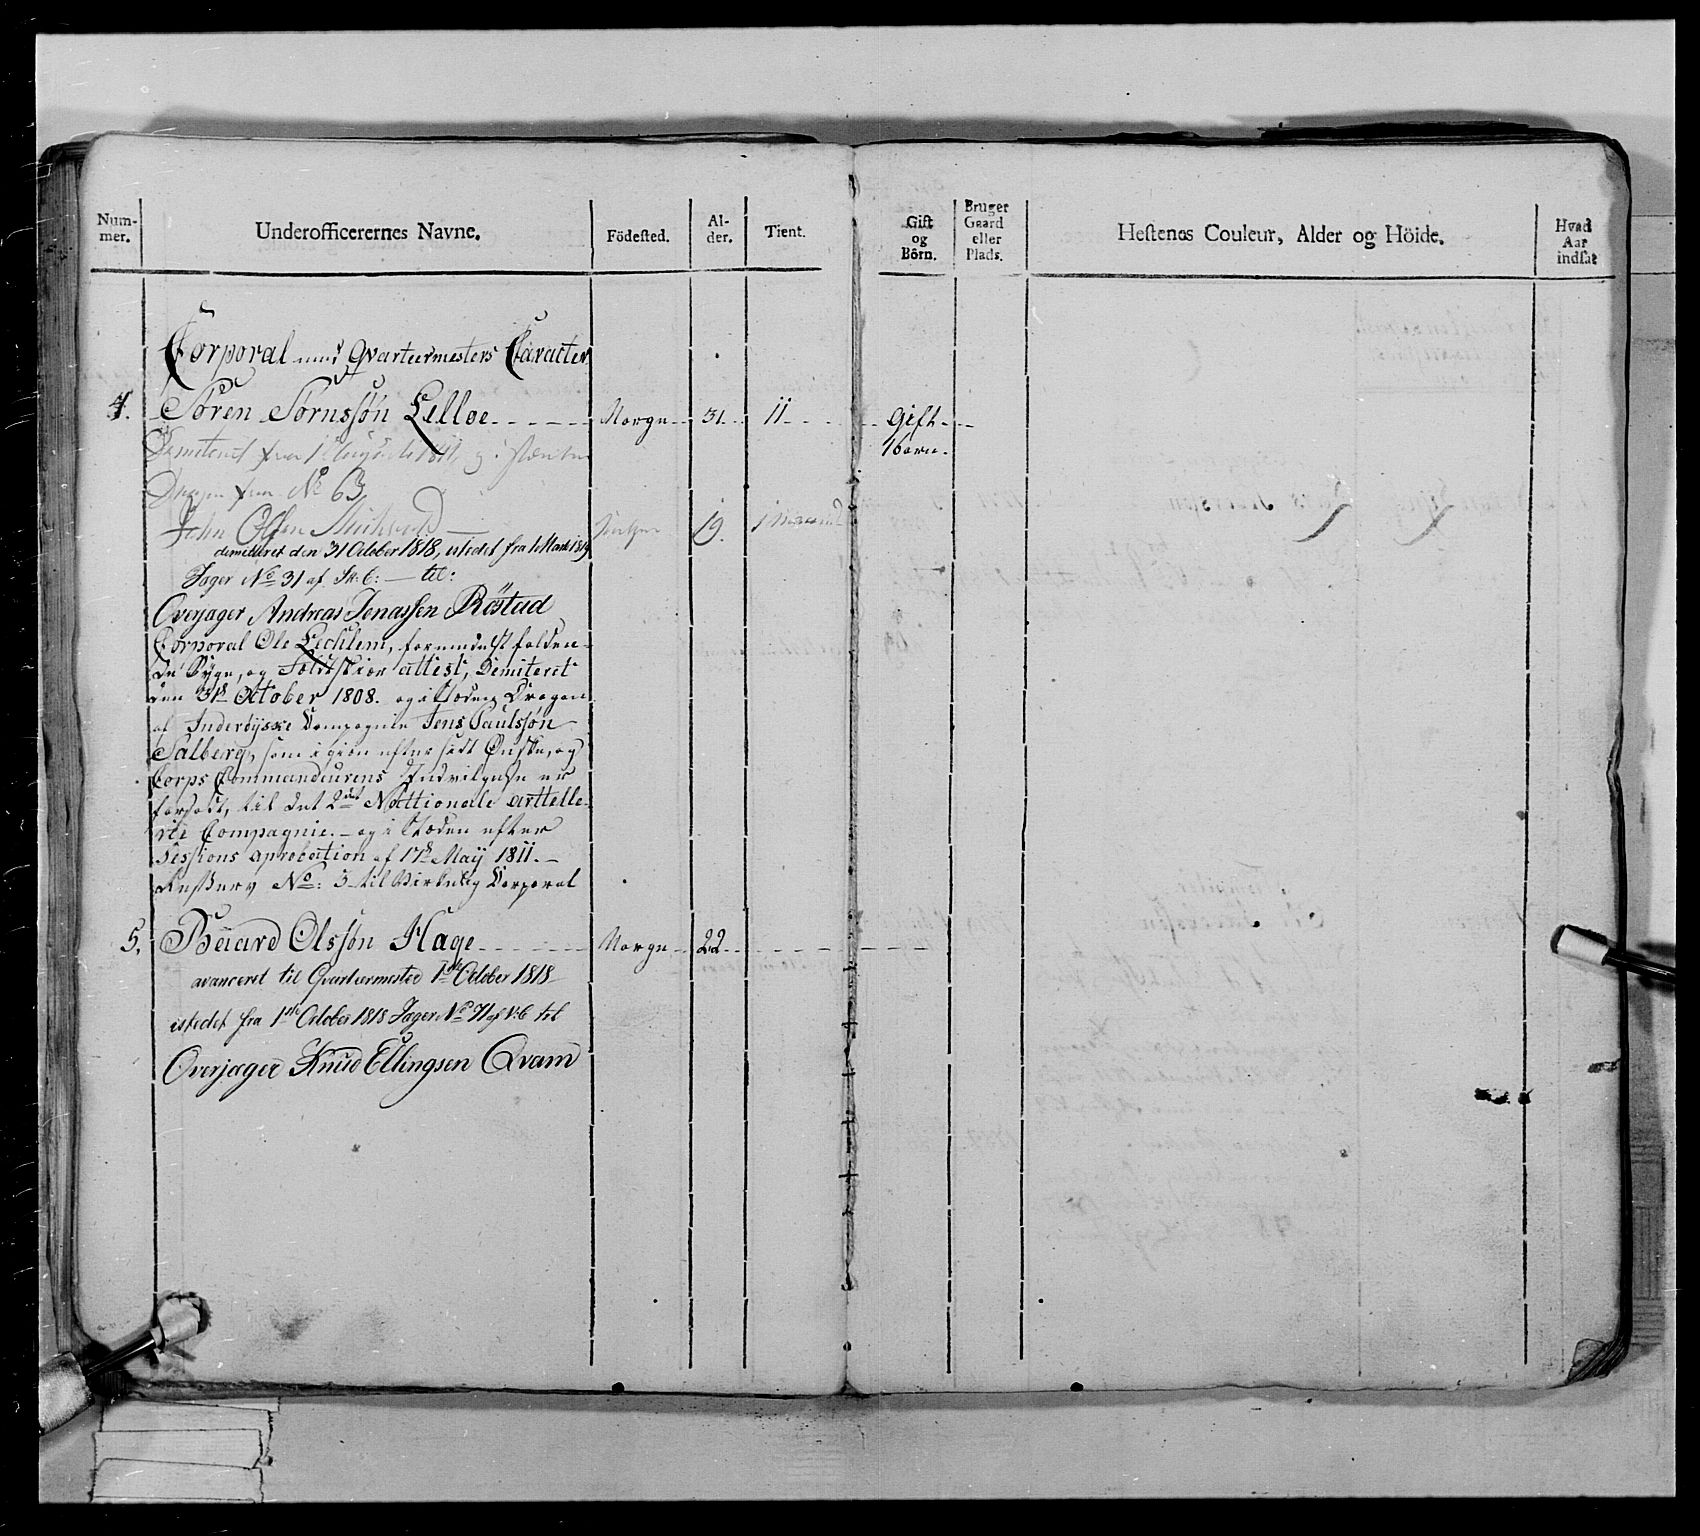 Num-
mer.
Underofficerernes Navne.
Födested.
Al-
der.
Tient.
Gift
og
Börn.
Bruger
Gaard
eller
Plads.
Hestenes Couleur, Alder og Höide.
Hvad
Aar
indsat
Corporal med Qvarteermesters Caracter
4. Sören Sörnssön Lelloe Norge 31. 11 Gift
1 barn.
Demiteret fra 1811
Dragon fra No 63
John Olsen 19. 1 maaned
demitteret den 31 October 1818, istedet fra 1 Marti 1819
Jager No 31 af Sk: 6: — til:
Overjager Andreas Jonassen Röstad
Corporal Ole Lechlem, formedelst falden-
de Syge, og attest, Demiteret
den 31te October 1808. og i Stæden Dragon
af Inderöyske Compagnie Jens Paulssön
Salberg, som igien efter sit Önske, og
Corps Commandeurens Indvilgelse er
forsadt, til det 2det Nattionale Arttelle-
rie Compagnie. — og i Stæden efter
Sessions aprobation af 17de Maÿ 1811. —
Reserv No: 3 til Corporal
5. Baard Olssön Hage Norge 22
avanceret til Qvarteermester 1ste October 1818
istedet fra 1ste October 1818 Jager No 71 af V: 6 til
Overjæger Knud Ellingsen Qvam